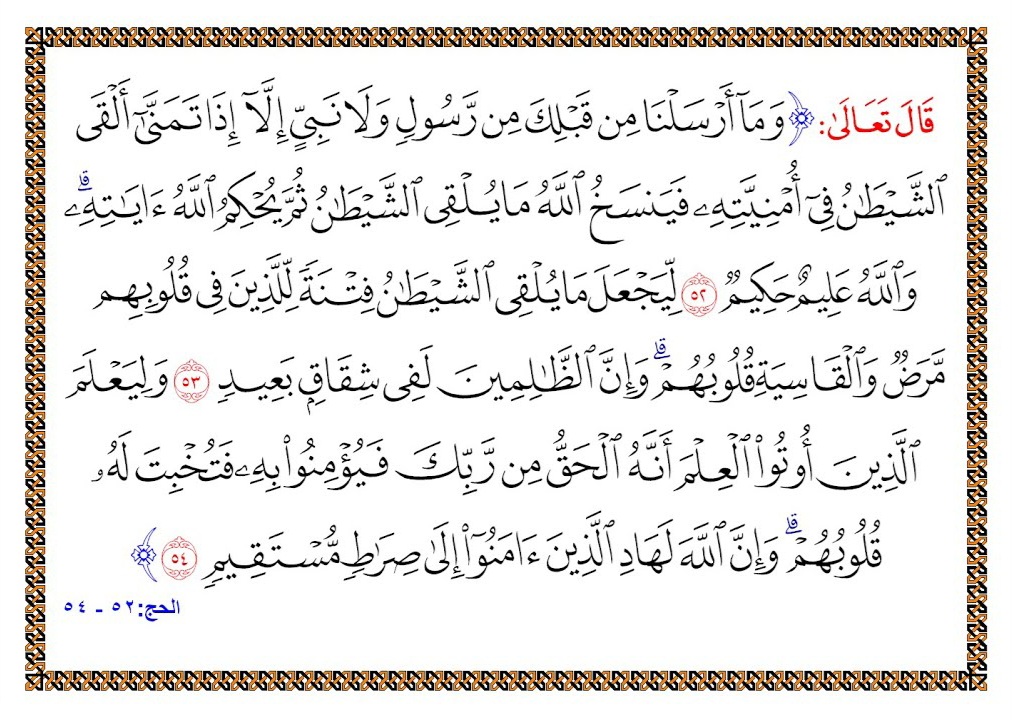 قَالَ تَعَالَىٰ: ﴿وَمَآ أَرۡسَلۡنَا مِن قَبۡلِكَ مِن رَّسُولٖ وَلَا نَبِيٍّ إِلَّآ إِذَا تَمَنَّىٰٓ أَلۡقَى
ٱلشَّيۡطَٰنُ فِيٓ أُمۡنِيَّتِهِۦ فَيَنسَخُ ٱللَّهُ مَا يُلۡقِي ٱلشَّيۡطَٰنُ ثُمَّ يُحۡكِمُ ٱللَّهُ ءَايَٰتِهِۦۗ
وَٱللَّهُ عَلِيمٌ حَكِيمٞ ٥٢ لِّيَجۡعَلَ مَا يُلۡقِي ٱلشَّيۡطَٰنُ فِتۡنَةٗ لِّلَّذِينَ فِي قُلُوبِهِم
مَّرَضٞ وَٱلۡقَاسِيَةِ قُلُوبُهُمۡۗ وَإِنَّ ٱلظَّٰلِمِينَ لَفِي شِقَاقِۭ بَعِيدٖ ٥٣ وَلِيَعۡلَمَ
ٱلَّذِينَ أُوتُواْ ٱلۡعِلۡمَ أَنَّهُ ٱلۡحَقُّ مِن رَّبِّكَ فَيُؤۡمِنُواْ بِهِۦ فَتُخۡبِتَ لَهُۥ
قُلُوبُهُمۡۗ وَإِنَّ ٱللَّهَ لَهَادِ ٱلَّذِينَ ءَامَنُوٓاْ إِلَىٰ صِرَٰطٖ مُّسۡتَقِيمٖ ٥٤﴾
الحج: ٥٢ - ٥٤